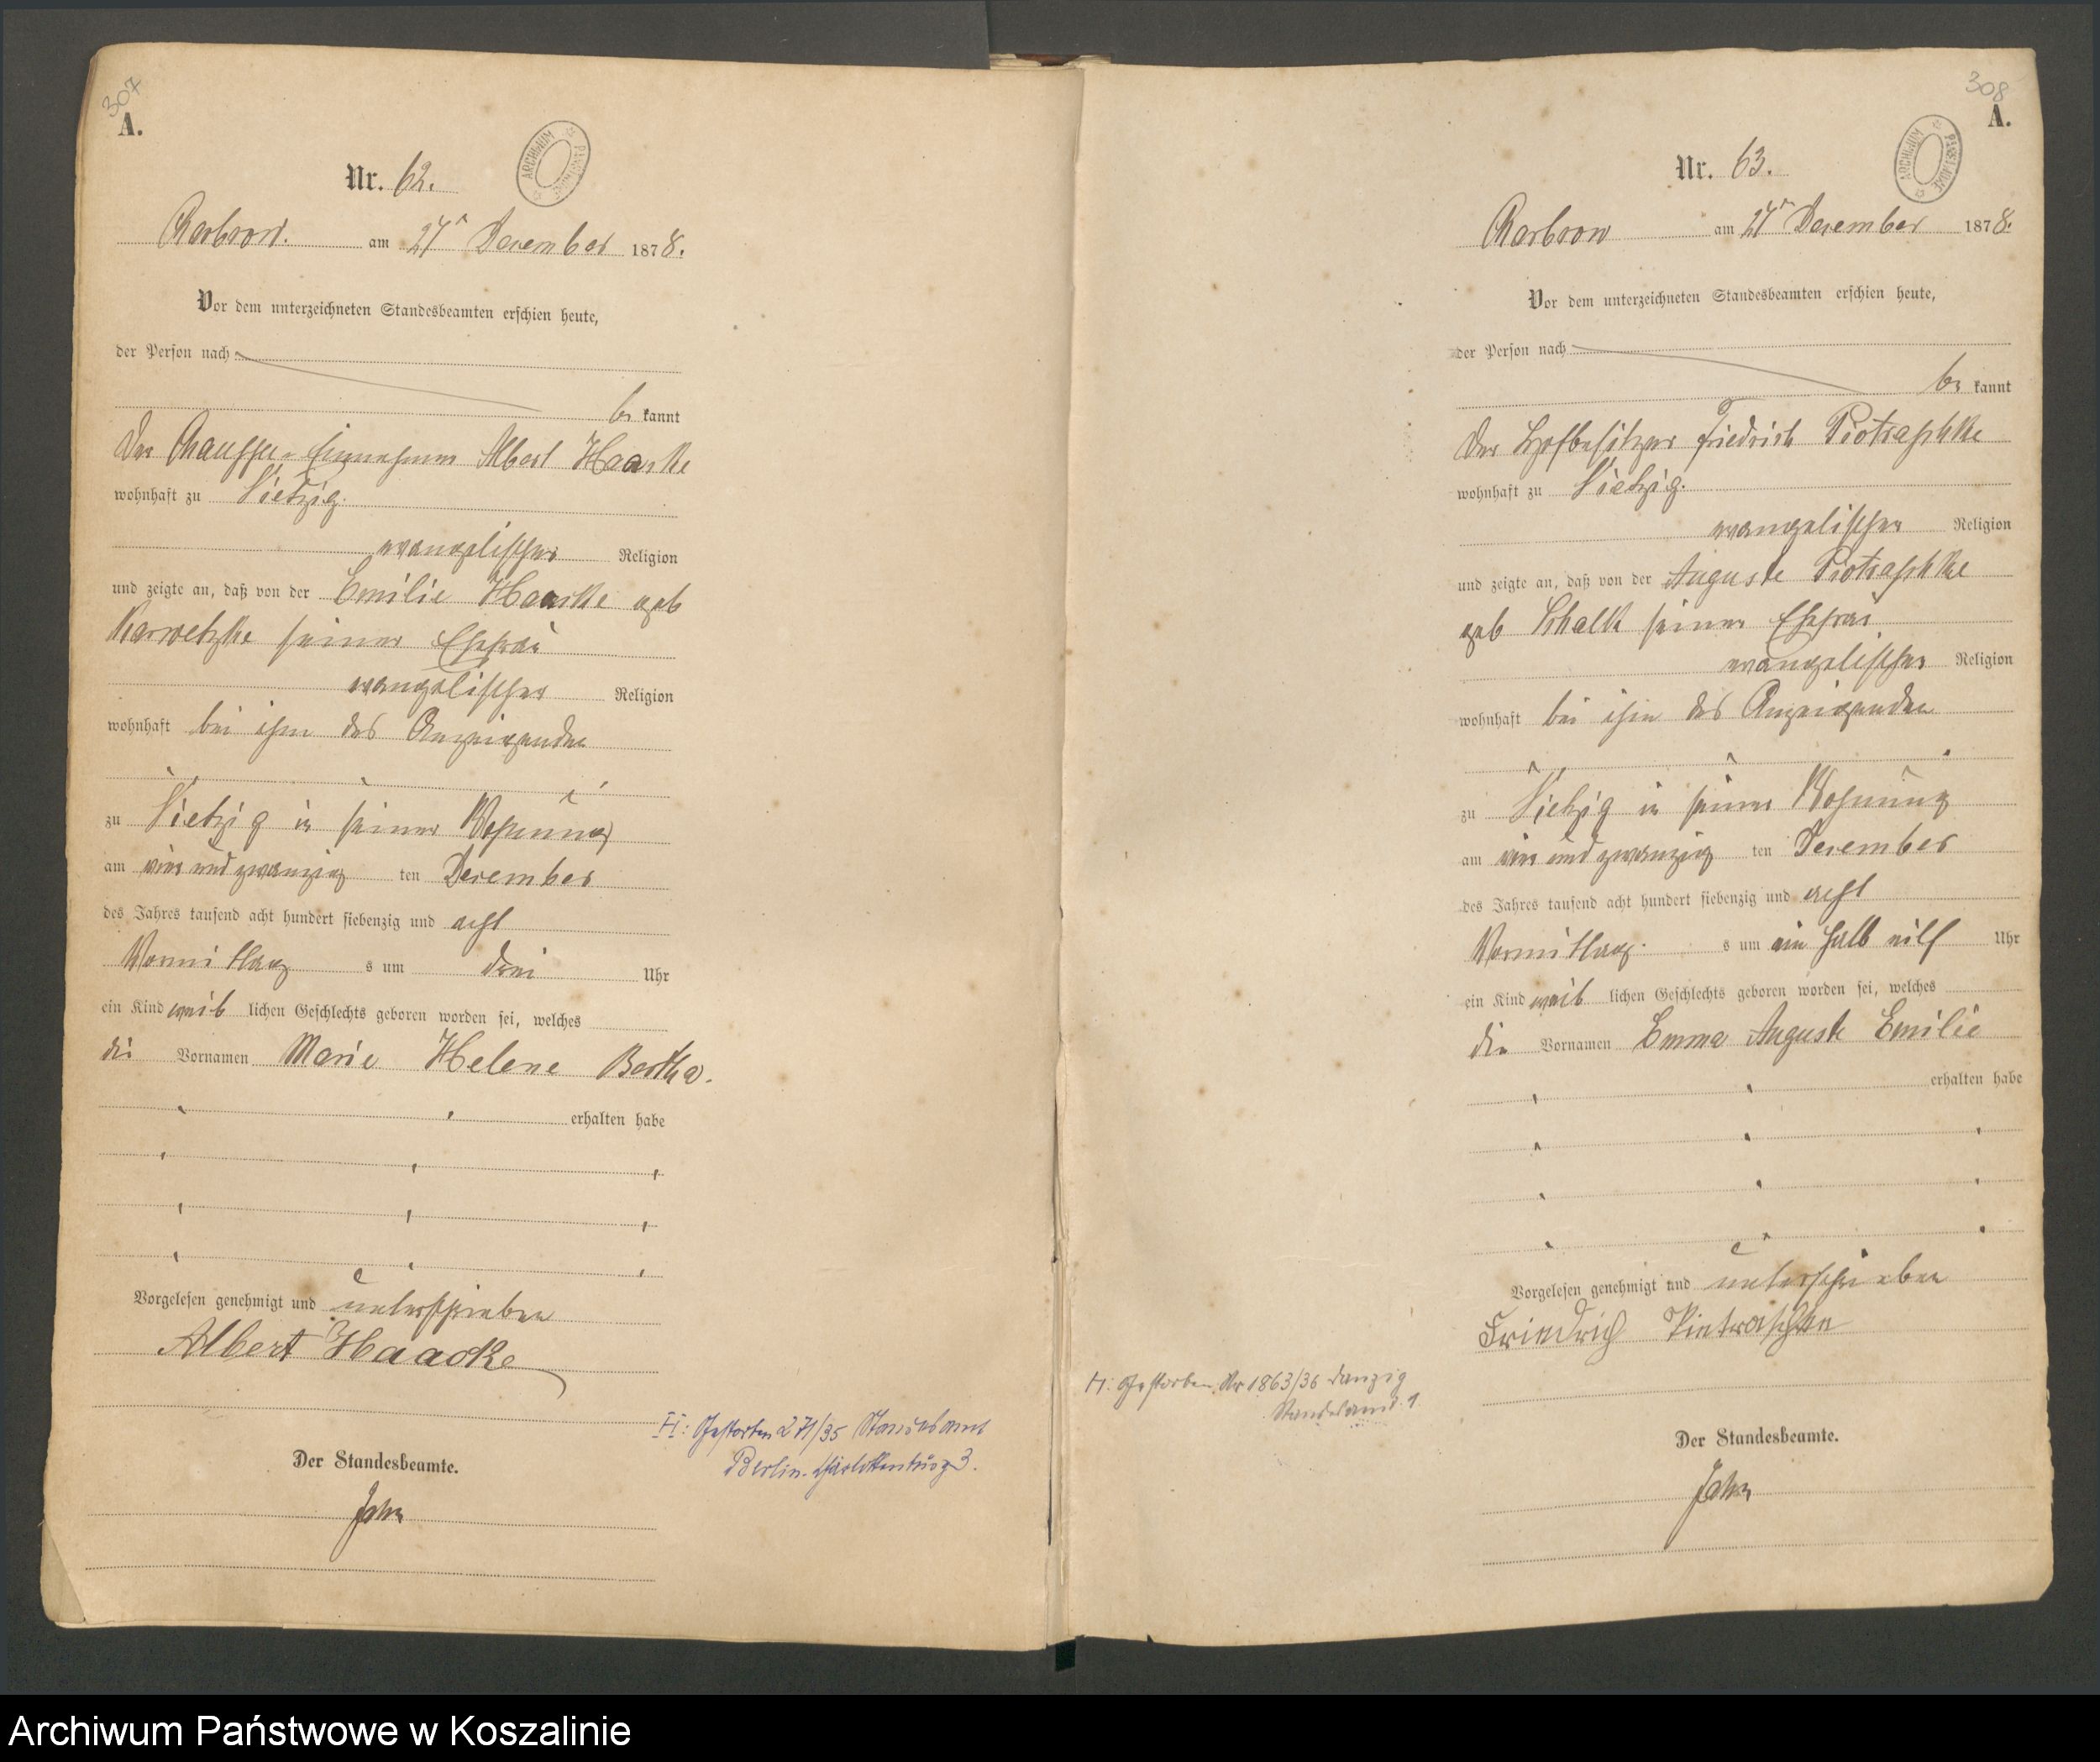 307
A.
ARCHIWUM PAŃSTWOWE
Nr. 62.
Charbrow. am 27ⁿ December 1878.
Vor dem unterzeichneten Standesbeamten erschien heute,
der Person nach
be kannt
Der Chaussee-Einnehmer Albert Haacke
wohnhaft zu Vietzig.
evangelischer Religion
und zeigte an, daß von der Emilie Haacke geb
Karwetzke seiner Ehefrau
evangelischer Religion
wohnhaft bei ihm des Anzeigenden
zu Vietzig in seiner Wohnung
am vier und zwanzig ten December
des Jahres tausend acht hundert siebenzig und acht
Vormittag s um drei Uhr
ein Kind weib lichen Geschlechts geboren worden sei, welches
die Vornamen Marie Helene Bertha.
erhalten habe
Vorgelesen genehmigt und unterschrieben
Albert Haacke
H: Gestorben 271/35 Standesamt
Berlin-Charlottenburg 3.
Der Standesbeamte.
Jahn
308
A.
ARCHIWUM PAŃSTWOWE
Nr. 63.
Charbrow am 27ⁿ December 1878.
Vor dem unterzeichneten Standesbeamten erschien heute,
der Person nach
be kannt
Der Hofbesitzer Friedrich Piotraschke
wohnhaft zu Vietzig.
evangelischer Religion
und zeigte an, daß von der Auguste Piotraschke
geb Schalk seiner Ehefrau
evangelischer Religion
wohnhaft bei ihm des Anzeigenden
zu Vietzig in seiner Wohnung
am vier und zwanzig ten December
des Jahres tausend acht hundert siebenzig und acht
Vormittag s um ein halb eilf Uhr
ein Kind weib lichen Geschlechts geboren worden sei, welches
die Vornamen Emma Auguste Emilie
erhalten habe
Vorgelesen genehmigt und unterschrieben
Friedrich Pietraschke
H: Gestorben Nr 1863/36 Danzig
Standesamt 1
Der Standesbeamte.
Jahn
Archiwum Państwowe w Koszalinie